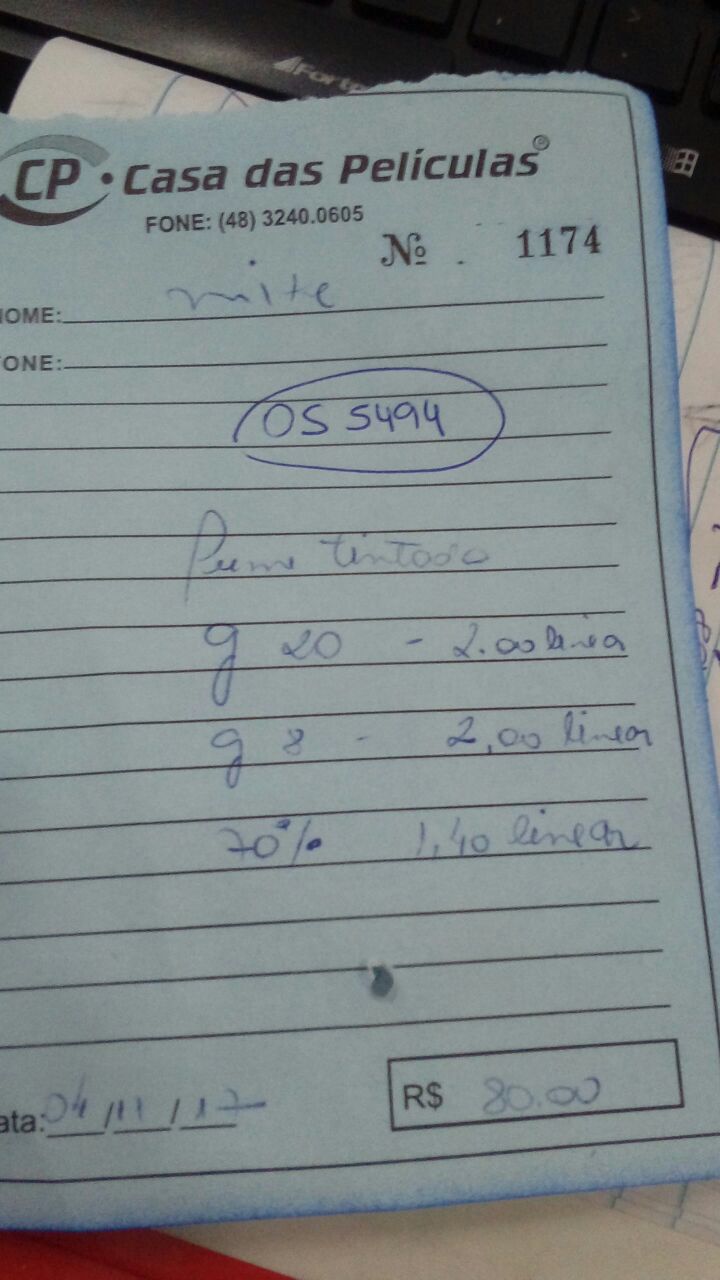 Fortr
CP • Casa das Películas ®
FONE: (48) 3240.0605
Nº 1174
NOME:
FONE:
OS 5494
tintado
g 20 - 2.00 linear
g 8 - 2,00 linear
70% 1,40 linear
Data: 04/11/17
R$ 80.00